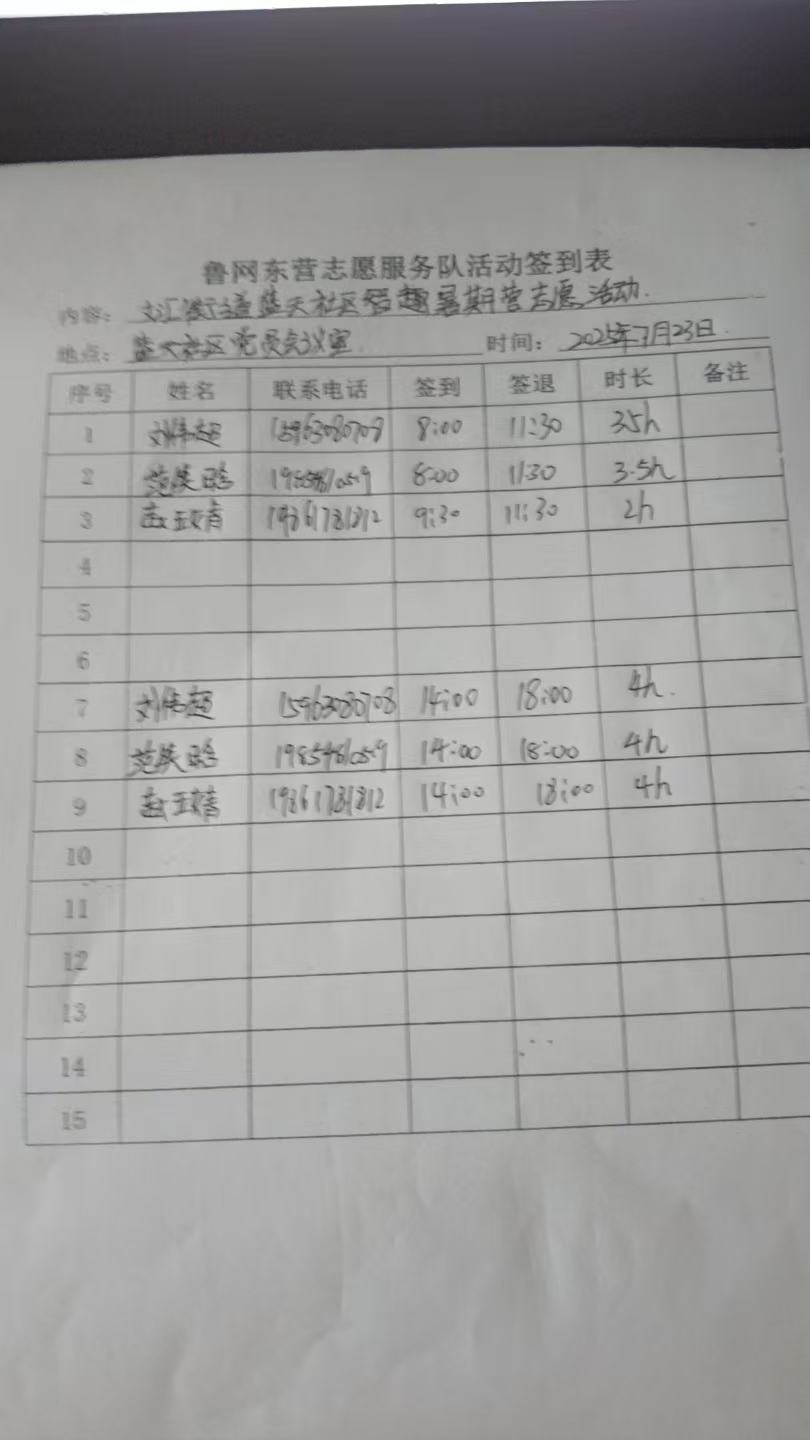 鲁网东营志愿服务队活动签到表
内容: 文汇街道蓝天社区 趣暑期营志愿活动.
地点: 蓝天社区党员会议室 时间: 2025年7月23日.
序号 姓名 联系电话 签到 签退 时长 备注
1 刘伟超 15963080708 8:00 11:30 3.5h
2 8:00 11:30 3.5h
3 19861781812 9:30 11:30 2h
4
5
6
7 刘伟超 15963080708 14:00 18:00 4h.
8 19854781059 14:00 18:00 4h
9 19861781812 14:00 18:00 4h
10
11
12
13
14
15